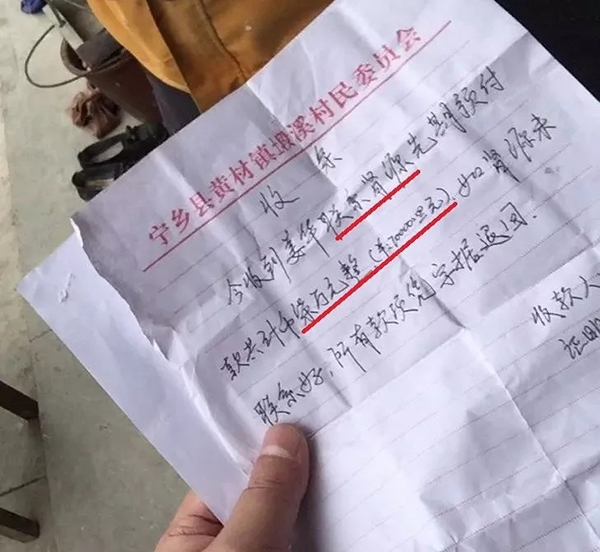 宁乡县黄材镇塅溪村民委员会
收条
今收到姜华联系肾源先期预付
款共计币柒万元整(¥:70000.00元).如肾源未
联系好,所有款项凭字据退回.
收款人
证明